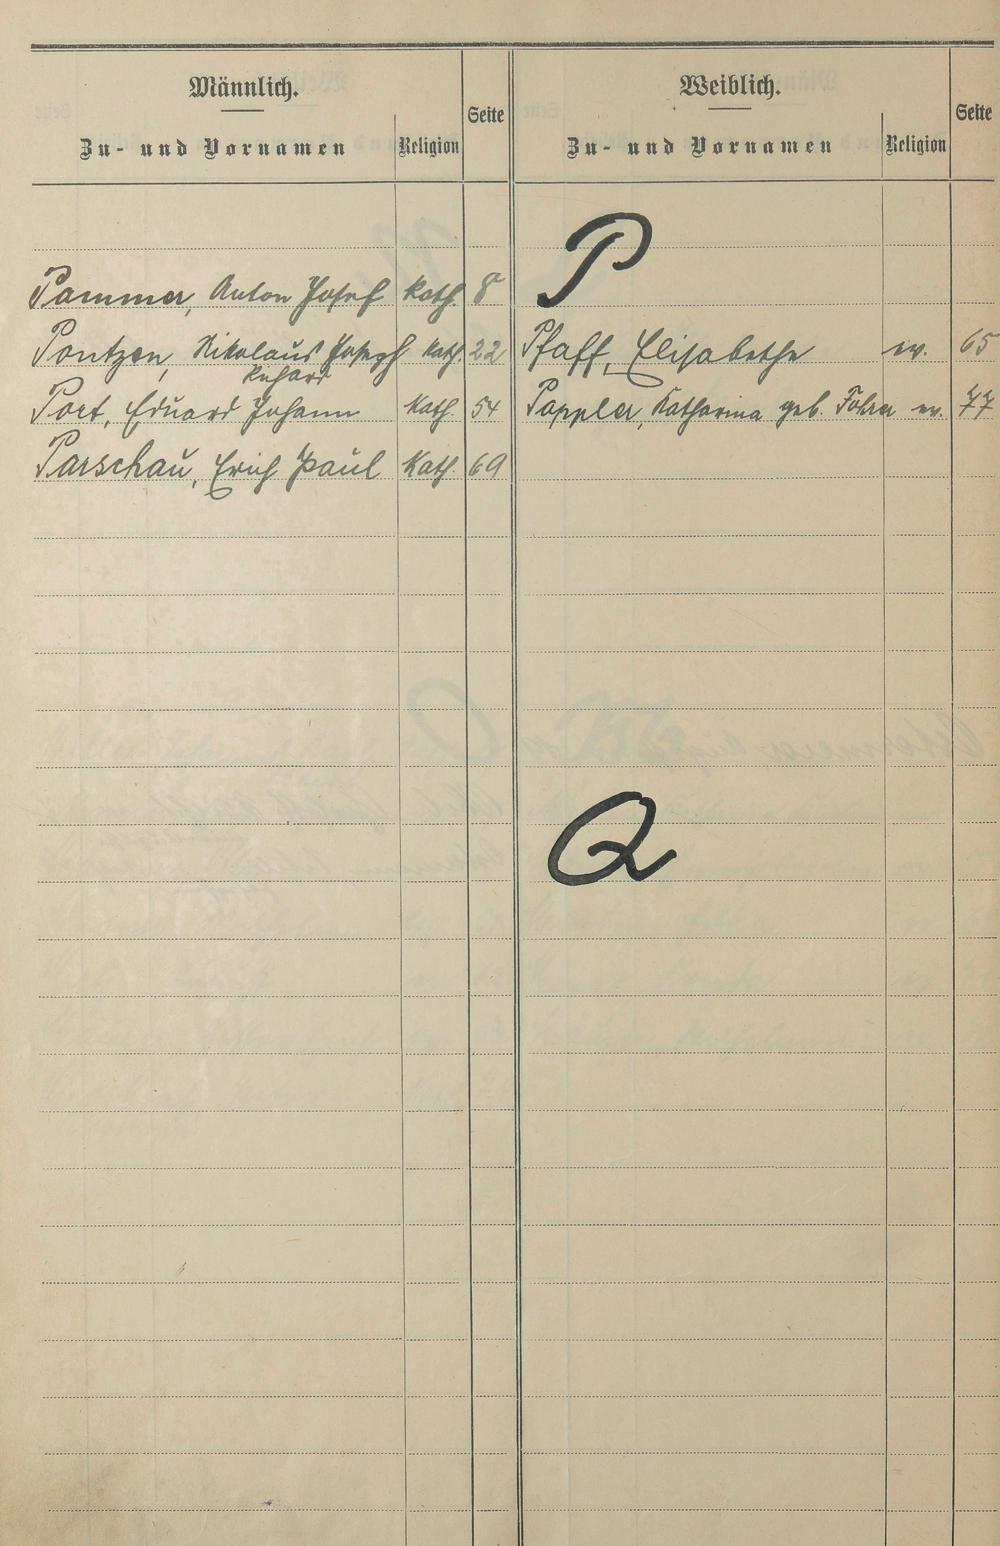 Männlich.
Zu- und Vornamen Religion Seite
Pammer, Anton Josef kath. 8
Pontzen, Nikolaus Joseph kath. 22
Richard
Port, Eduard Johann kath. 54
Parschau, Erich Paul kath. 69
Weiblich.
Zu- und Vornamen Religion Seite
P
Pfaff, Elisabethe ev. 65
Pappler, Katharina geb. Fohrer ev. 77
Q